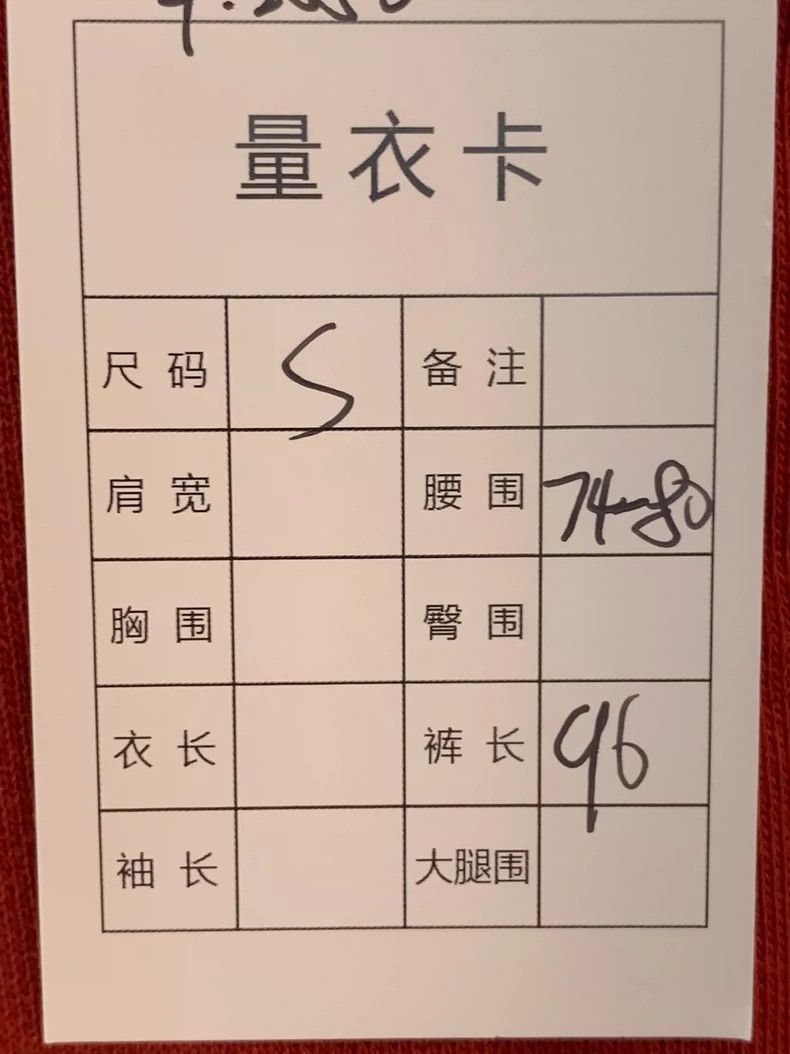 量衣卡
尺码 S 备注
肩宽 腰围 74-80
胸围 臀围
衣长 裤长 96
袖长 大腿围